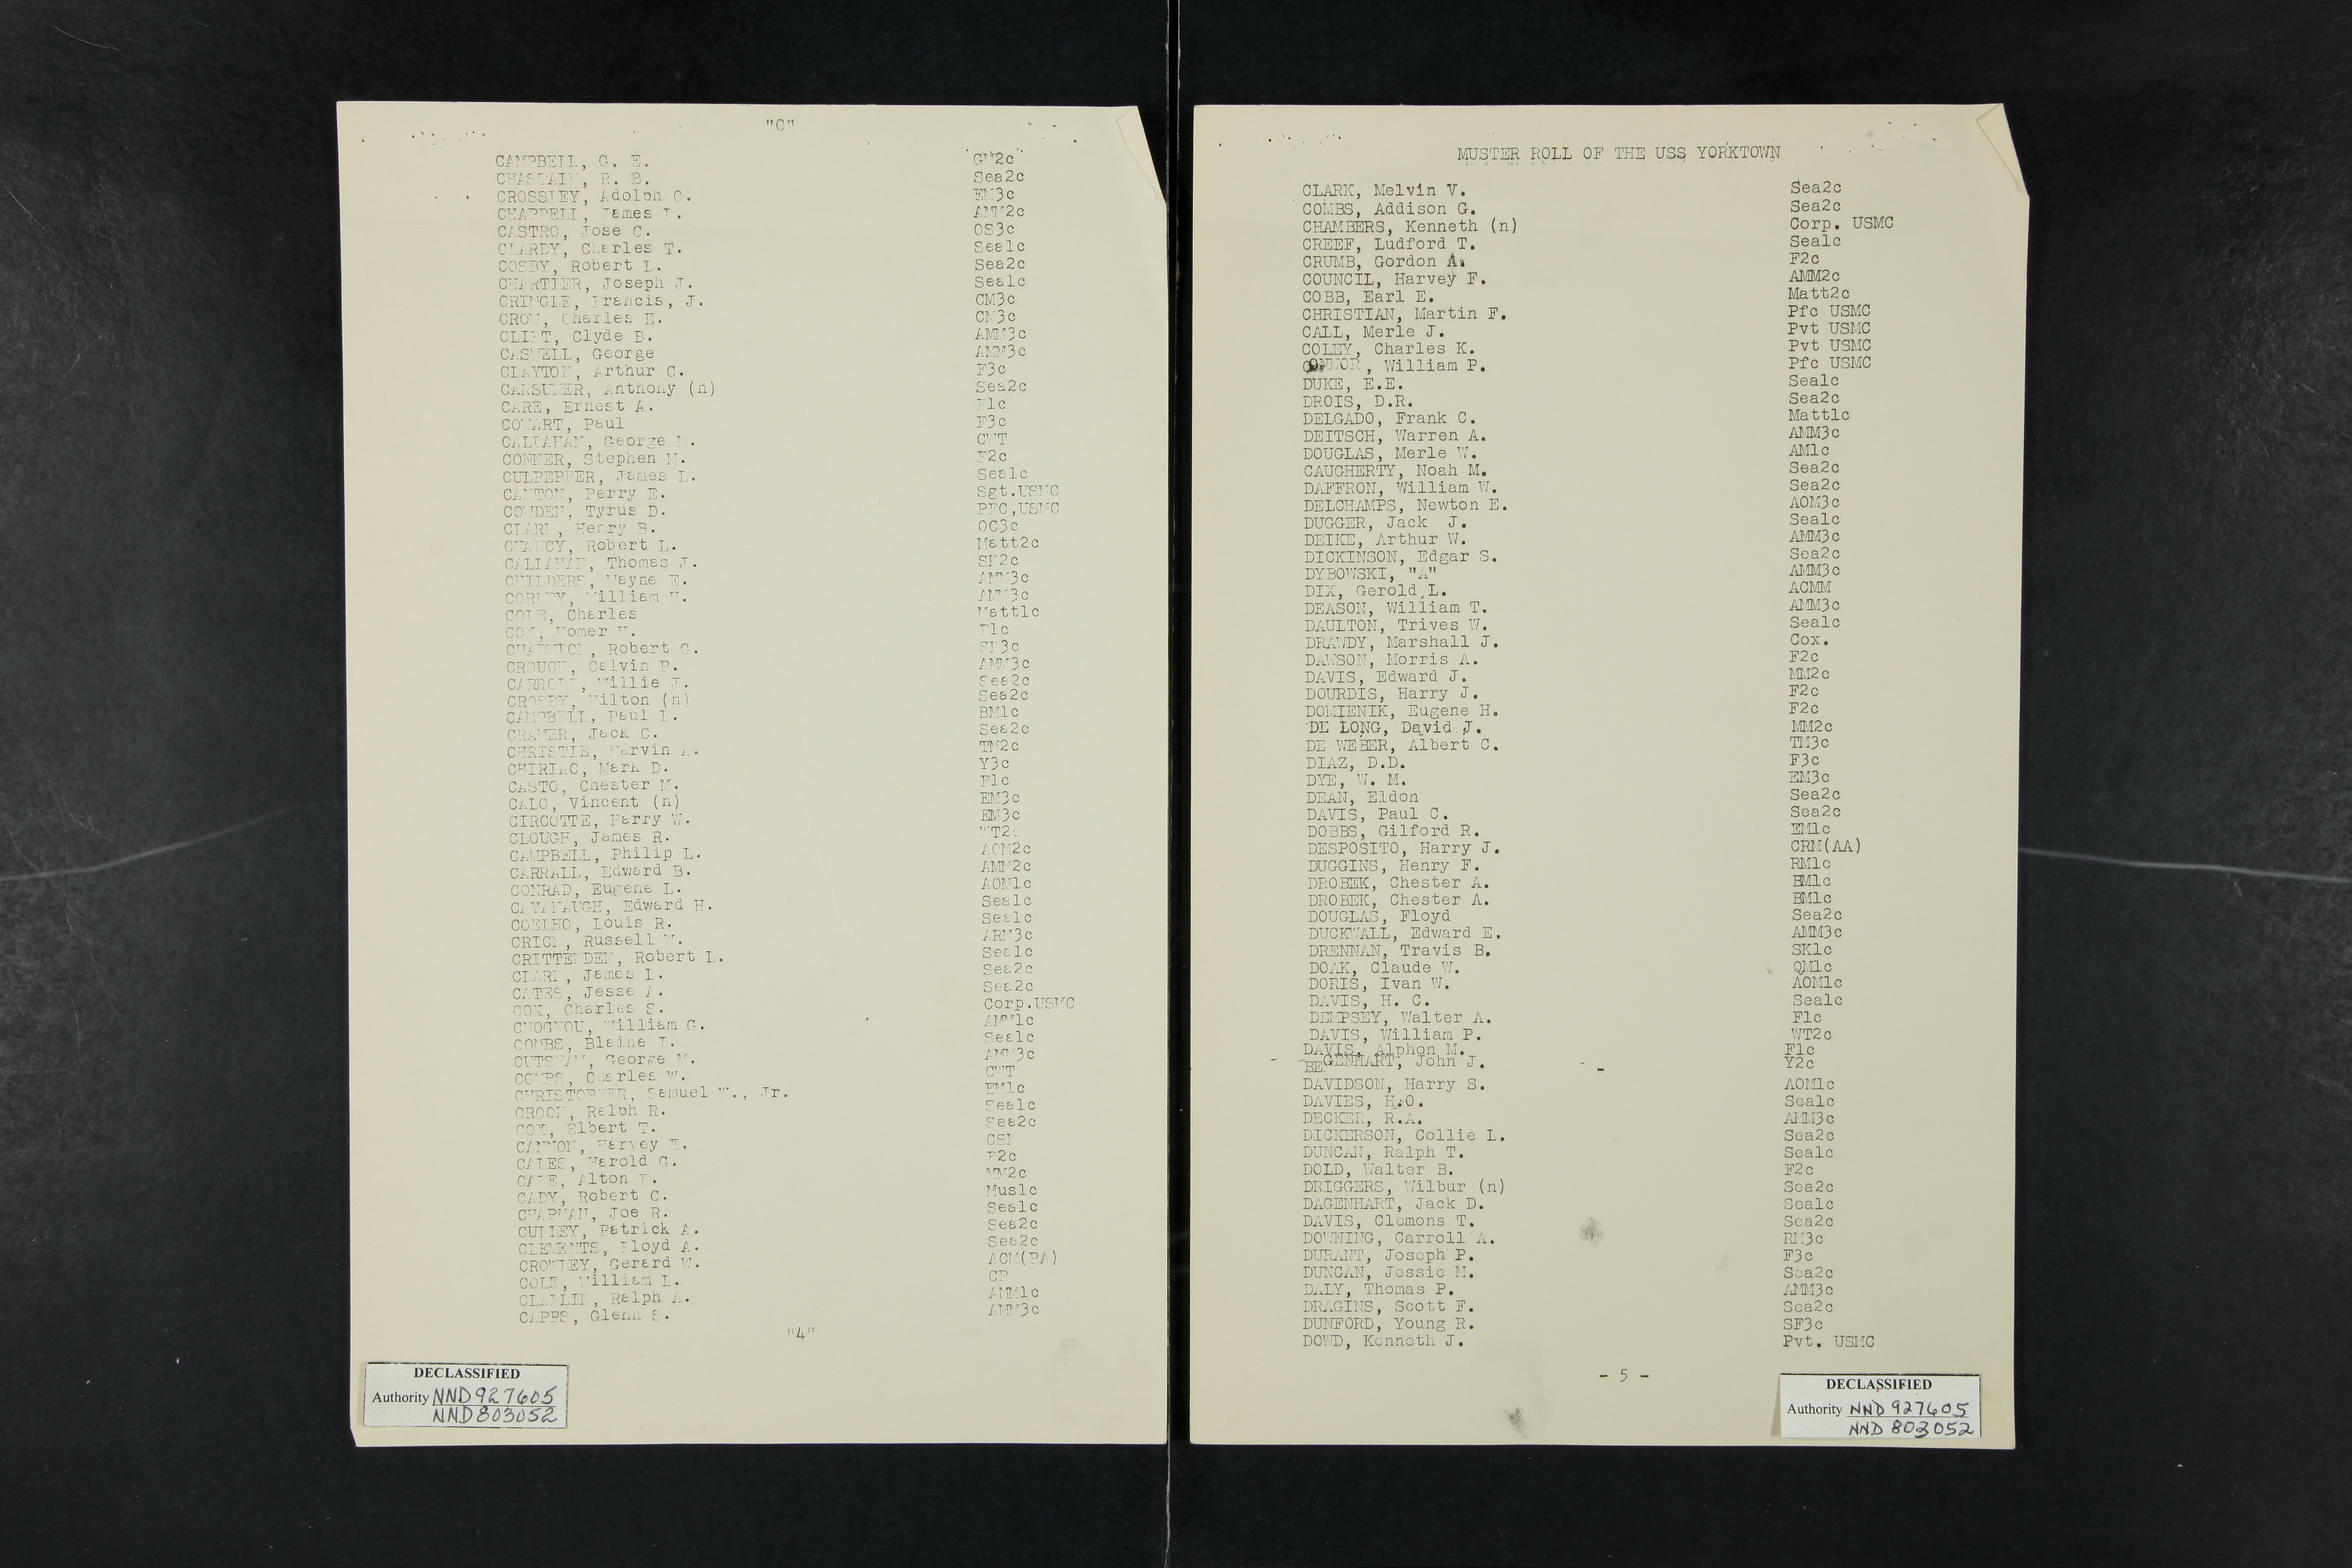 "C"
CAMPBELL, G. E. GM2c
CHASTAIN, R. B. Sea2c
CROSSLEY, Adolph C. EM3c
CHAPPELL, James L. AMM2c
CASTRO, Jose C. OS3c
CLARDY, Charles T. Sea1c
COSBY, Robert L. Sea2c
CHARTIER, Joseph J. Sea1c
CRINGLE, Francis, J. CM3c
CROW, Charles E. CM3c
CLIFT, Clyde B. AMM3c
CASWELL, George AMM3c
CLAYTON, Arthur C. F3c
Anthony (n) Sea2c
CARE, Ernest A. F1c
COWART, Paul F3c
CALLAHAN, George CWT
CONNER, Stephen M. F2c
CULPEPPER, James L. Sea1c
CANTON, Perry E. Sgt.USMC
COWDEN, Tyrus D. PFC,USMC
CLARK, Henry B. OC3c
CHANCY, Robert L. Matt2c
CALLAHAN, Thomas J.
CHILDERS, Wayne E. AMM3c
William H. AMM3c
COLE, Charles Matt1c
COX, Homer F1c
Robert G.
CROUCH, Calvin P. AMM3c
CARROLL, Willie J. Sea2c
CROSBY, (n) Sea2c
CAMPBELL, Paul L. BM1c
CRAMER, Jack C. Sea2c
CHRISTIE, Marvin A. TM2c
CHIRIAC, Mark D. Y3c
CASTO, Chester M. F1c
CALO, Vincent (n) EM3c
CIRCOTTE, Harry W. EM3c
CLOUGH, James R. WT2c
CAMPBELL, Philip L. AOM2c
CARRALL, Edward B. AMM2c
CONRAD, Eugene L. AOM1c
CAVANAUGH, Edward H. Sea1c
COELHO, Louis R. Sea1c
CRICK, Russell W. ARM3c
CRITTENDEN, Robert L. Sea1c
CLARK, James L. Sea2c
CATES, Jesse A. Sea2c
COX, Charles S. Corp.USMC
William G. AMM1c
COMBS, Blaine Sea1c
George AMM3c
Charles W. CWT
CHRISTOPHER, Samuel W., Jr. EM1c
Ralph R. Sea1c
COX, Elbert T. Sea2c
CANNON, Harvey E.
CALES, Harold G. F2c
Alton MM2c
CADY, Robert C. Mus1c
CHAPMAN, Joe R. Sea1c
CULLEY, Patrick A. Sea2c
CLEMENTS, Floyd A. Sea2c
CROWLEY, Gerard W. ACM(PA)
COLE, William L. CP
Ralph A. AMM1c
CAPPS, Glenn S. AMM3c
"4"
DECLASSIFIED
Authority NND 927605
NND 803052
MUSTER ROLL OF THE USS YORKTOWN
CLARK, Melvin V. Sea2c
COMBS, Addison G. Sea2c
CHAMBERS, Kenneth (n) Corp. USMC
CREEF, Ludford T. Sea1c
CRUMB, Gordon A. F2c
COUNCIL, Harvey F. AMM2c
COBB, Earl E. Matt2c
CHRISTIAN, Martin F. Pfc USMC
CALL, Merle J. Pvt USMC
COLEY, Charles K. Pvt USMC
CONNOR, William P. Pfc USMC
DUKE, E.E. Sea1c
DROIS, D.R. Sea2c
DELGADO, Frank C. Matt1c
DEITSCH, Warren A. AMM3c
DOUGLAS, Merle W. AM1c
CAUGHERTY, Noah M. Sea2c
DAFFRON, William W. Sea2c
DELCHAMPS, Newton E. AOM3c
DUGGER, Jack J. Sea1c
DEIKE, Arthur W. AMM3c
DICKINSON, Edgar S. Sea2c
DYBOWSKI, "A" AMM3c
DIX, Gerold L. ACMM
DEASON, William T. AMM3c
DAULTON, Trives W. Sea1c
DRAWDY, Marshall J. Cox.
DAWSON, Morris A. F2c
DAVIS, Edward J. MM2c
DOURDIS, Harry J. F2c
DOMIENIK, Eugene H. F2c
DE LONG, David J. MM2c
DE WEBER, Albert C. TM3c
DIAZ, D.D. F3c
DYE, W. M. EM3c
DEAN, Eldon Sea2c
DAVIS, Paul C. Sea2c
DOBBS, Gilford R. EM1c
DESPOSITO, Harry J. CRM(AA)
DUGGINS, Henry F. RM1c
DROBEK, Chester A. BM1c
DROBEK, Chester A. BM1c
DOUGLAS, Floyd Sea2c
DUCKWALL, Edward E. AMM3c
DRENNAN, Travis B. SK1c
DOAK, Claude W. QM1c
DORIS, Ivan W. AOM1c
DAVIS, H. C. Sea1c
DEMPSEY, Walter A. F1c
DAVIS, William P. WT2c
DAVIS, Alphon M. F1c
BEGENHART, John J. Y2c
DAVIDSON, Harry S. AOM1c
DAVIES, H.O. Sea1c
DECKER, R.A. AMM3c
DICKERSON, Collie L. Sea2c
DUNCAN, Ralph T. Sea1c
DOLD, Walter B. F2c
DRIGGERS, Wilbur (n) Sea2c
DAGENHART, Jack D. Sea1c
DAVIS, Clemons T. Sea2c
DOWNING, Carroll A. RM3c
DURANT, Joseph P. F3c
DUNCAN, Jessie M. Sea2c
DALY, Thomas P. AMM3c
DRAGINS, Scott F. Sea2c
DUNFORD, Young R. SF3c
DOWD, Kenneth J. Pvt. USMC
- 5 -
DECLASSIFIED
Authority NND 927605
NND 803052